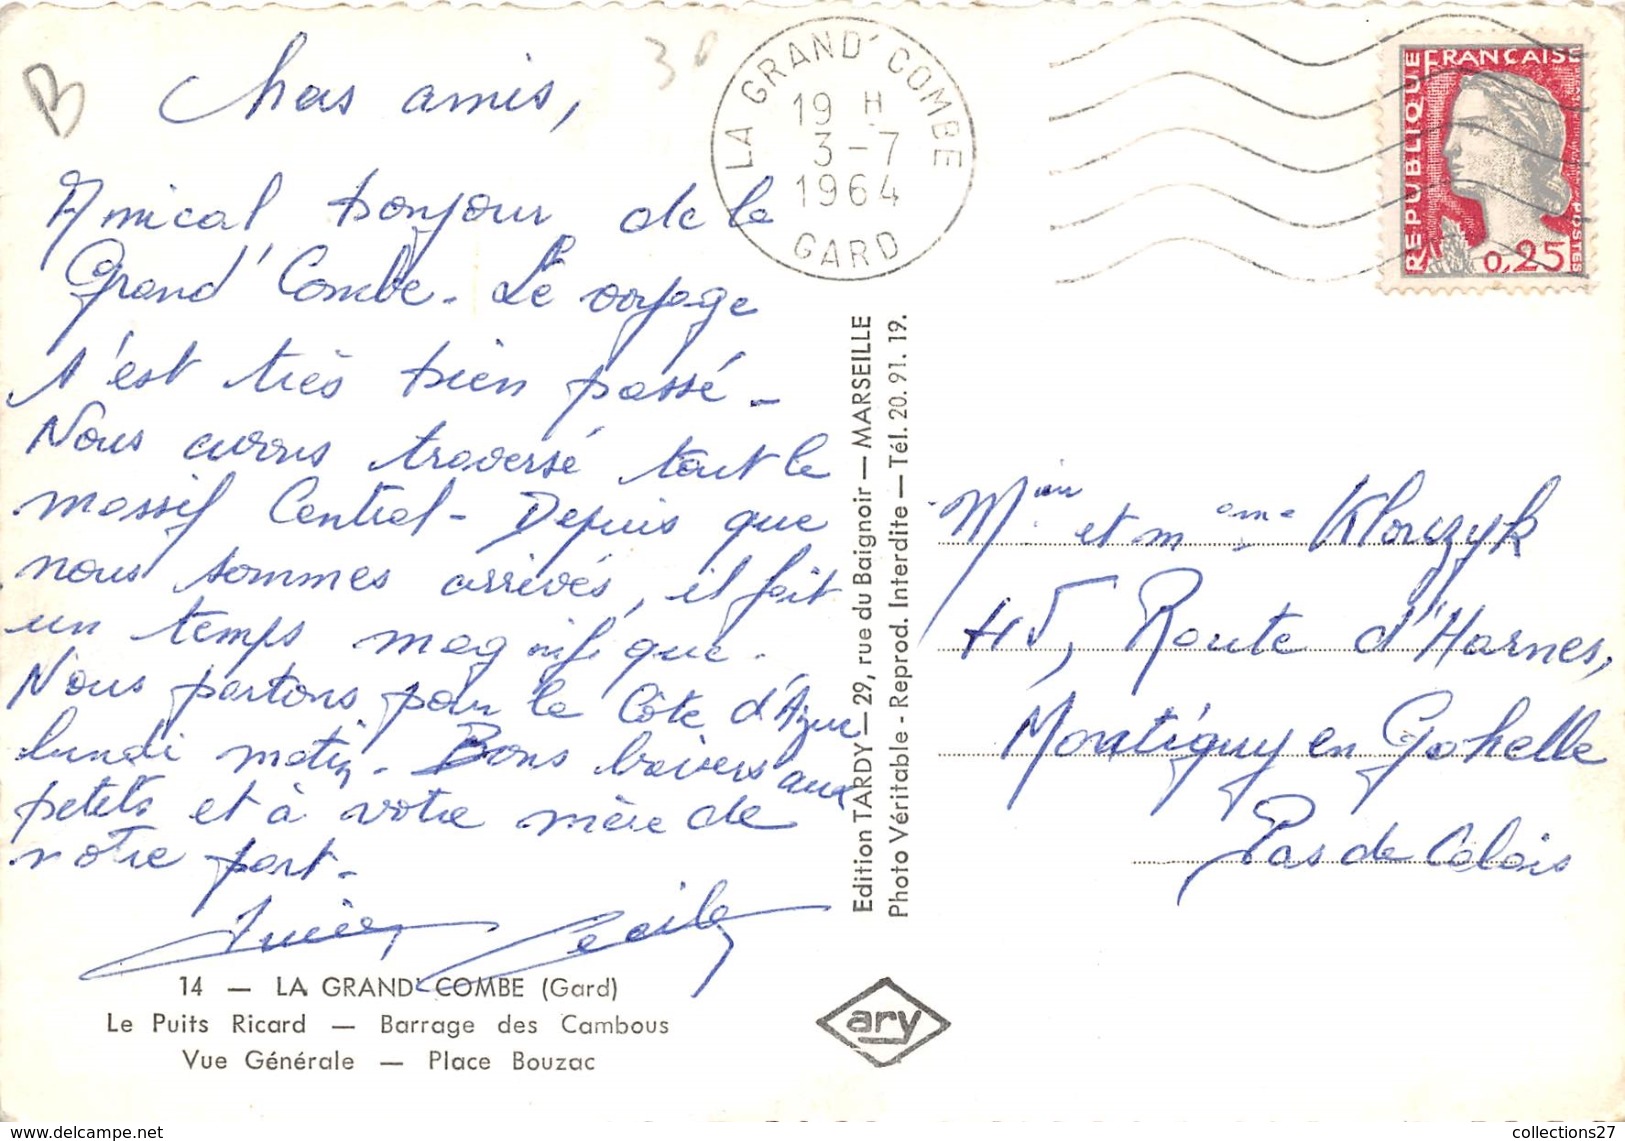 B
30
Chers amis,
Amical bonjour de la
Grand' Combe. Le voyage
s'est très bien passé -
Nous avons traversé tout le
massif Central - Depuis que
nous sommes arrivés, il fait
un temps magnifique.
Nous partons pour la Côte d'Azur
lundi matin. Bons baisers aux
petits et à votre mère de
notre part -
Cécile
14 — LA GRAND' COMBE (Gard)
Le Puits Ricard — Barrage des Cambous
Vue Générale — Place Bouzac
LA GRAND' COMBE
19 H
3 - 7
1964
GARD
REPUBLIQUE FRANÇAISE
POSTES
0,25
Edition TARDY — 29, rue du Baignoir — MARSEILLE
Photo Véritable - Reprod. Interdite — Tél. 20. 91. 19.
et Mme
45, Route d'Harnes,
Montigny en Gohelle
Pas de Calais
ary
www.delcampe.net
collections27